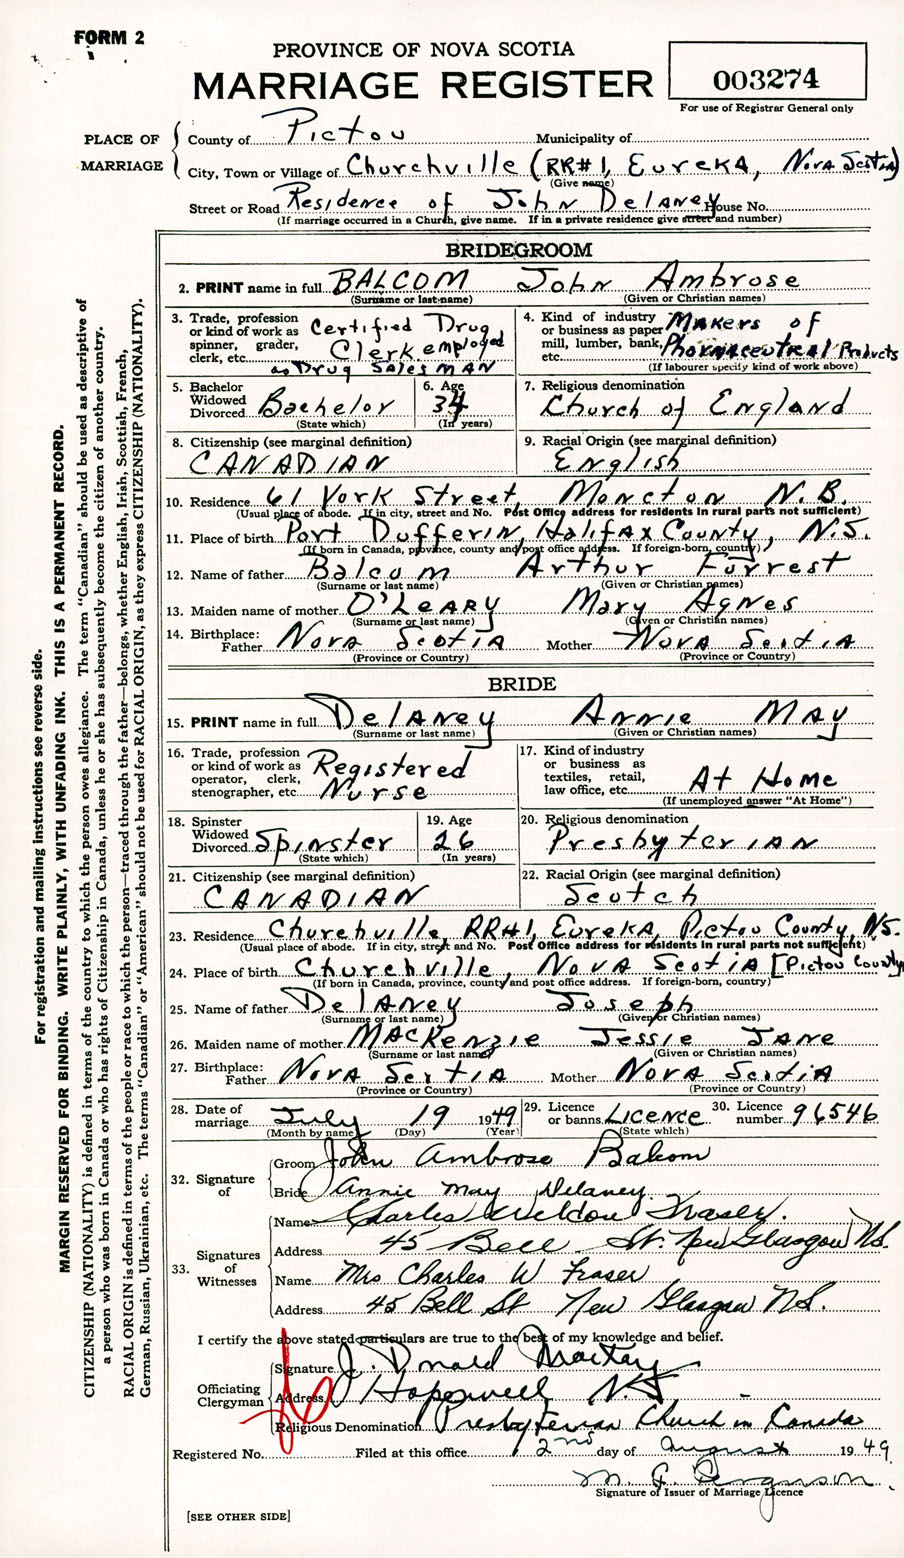 FORM 2
PROVINCE OF NOVA SCOTIA
MARRIAGE REGISTER
003274
For use of Registrar General only
PLACE OF MARRIAGE
County of Pictou Municipality of
City, Town or Village of Churchville (RR#1, Eureka, Nova Scotia)
(Give name)
Street or Road Residence of John Delaney House No.
(If marriage occurred in a Church, give name. If in a private residence give street and number)
BRIDEGROOM
2. PRINT name in full BALCOM John Ambrose
(Surname or last name) (Given or Christian names)
3. Trade, profession or kind of work as spinner, grader, clerk, etc. Certified Drug Clerk employed as Drug Salesman
4. Kind of industry or business as paper mill, lumber, bank, etc. Makers of Pharmaceutical Products
(If labourer specify kind of work above)
5. Bachelor Widowed Divorced Bachelor
(State which)
6. Age 34
(In years)
7. Religious denomination
Church of England
8. Citizenship (see marginal definition)
CANADIAN
9. Racial Origin (see marginal definition)
English
10. Residence 61 York Street, Moncton N.B.
(Usual place of abode. If in city, street and No. Post Office address for residents in rural parts not sufficient)
11. Place of birth Port Dufferin, Halifax County, N.S.
(If born in Canada, province, county and post office address. If foreign-born, country)
12. Name of father Balcom Arthur Forrest
(Surname or last name) (Given or Christian names)
13. Maiden name of mother O'Leary Mary Agnes
(Surname or last name) (Given or Christian names)
14. Birthplace: Father Nova Scotia Mother Nova Scotia
(Province or Country) (Province or Country)
BRIDE
15. PRINT name in full Delaney Annie May
(Surname or last name) (Given or Christian names)
16. Trade, profession or kind of work as operator, clerk, stenographer, etc. Registered Nurse
17. Kind of industry or business as textiles, retail, law office, etc. At Home
(If unemployed answer "At Home")
18. Spinster Widowed Divorced Spinster
(State which)
19. Age 26
(In years)
20. Religious denomination
Presbyterian
21. Citizenship (see marginal definition)
CANADIAN
22. Racial Origin (see marginal definition)
Scotch
23. Residence Churchville RR#1, Eureka, Pictou County, N.S.
(Usual place of abode. If in city, street and No. Post Office address for residents in rural parts not sufficient)
24. Place of birth Churchville, Nova Scotia [Pictou County
(If born in Canada, province, county and post office address. If foreign-born, country)
25. Name of father Delaney Joseph
(Surname or last name) (Given or Christian names)
26. Maiden name of mother MacKenzie Jessie Jane
(Surname or last name) (Given or Christian names)
27. Birthplace: Father Nova Scotia Mother Nova Scotia
(Province or Country) (Province or Country)
28. Date of marriage July 19 1949
(Month by name) (Day) (Year)
29. Licence or banns Licence
(State which)
30. Licence number 96546
32. Signature of
Groom John Ambrose Balcom
Bride Annie May Delaney
33. Signatures of Witnesses
Name Charles Weldon Fraser.
Address 45 Bell St. New Glasgow N.S.
Name Mrs Charles W Fraser
Address 45 Bell St New Glasgow N.S.
I certify the above stated particulars are true to the best of my knowledge and belief.
Officiating Clergyman
Signature J. Donald MacKay
Address Hopewell N.S.
Religious Denomination Presbyterian Church in Canada
Registered No. Filed at this office 2nd day of August 1949
M. F. Ferguson
Signature of Issuer of Marriage Licence
[SEE OTHER SIDE]
For registration and mailing instructions see reverse side.
MARGIN RESERVED FOR BINDING. WRITE PLAINLY, WITH UNFADING INK. THIS IS A PERMANENT RECORD.
CITIZENSHIP (NATIONALITY) is defined in terms of the country to which the person owes allegiance. The term "Canadian" should be used as descriptive of
a person who was born in Canada or who has rights of Citizenship in Canada, unless he or she has subsequently become the citizen of another country.
RACIAL ORIGIN is defined in terms of the people or race to which the person—traced through the father—belongs, whether English, Irish, Scottish, French,
German, Russian, Ukrainian, etc. The terms "Canadian" or "American" should not be used for RACIAL ORIGIN, as they express CITIZENSHIP (NATIONALITY).